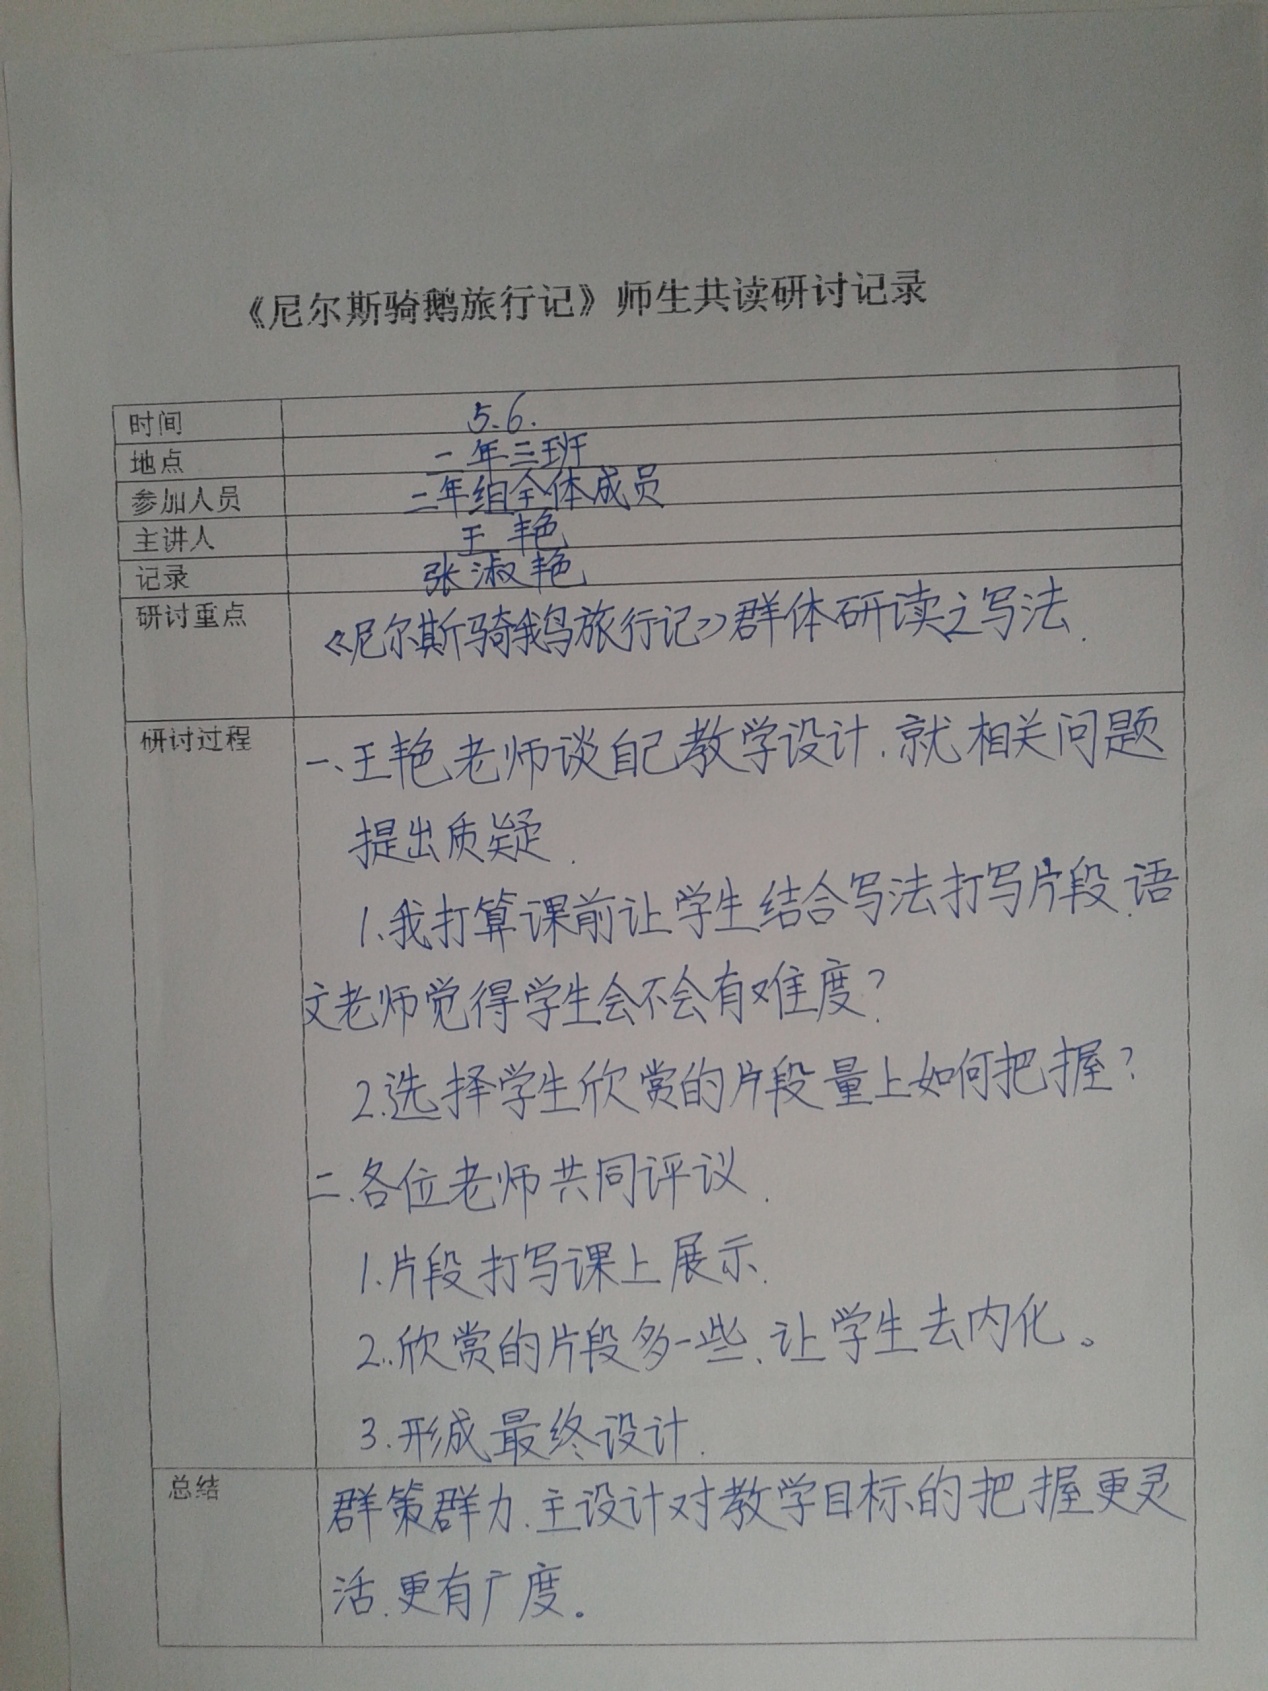 《尼尔斯骑鹅旅行记》师生共读研讨记录
时间 5.6.
地点 二年三班
参加人员 二年组全体成员
主讲人 王艳
记录 张淑艳
研讨重点 《尼尔斯骑鹅旅行记》群体研读之写法.
研讨过程 一、王艳老师谈自己教学设计.就相关问题
提出质疑.
1.我打算课前让学生结合写法打写片段.语
文老师觉得学生会不会有难度?
2.选择学生欣赏的片段量上如何把握?
二.各位老师共同评议.
1.片段打写课上展示.
2.欣赏的片段多一些、让学生去内化。
3.形成最终设计.
总结 群策群力.主设计对教学目标的把握更灵
活.更有广度。